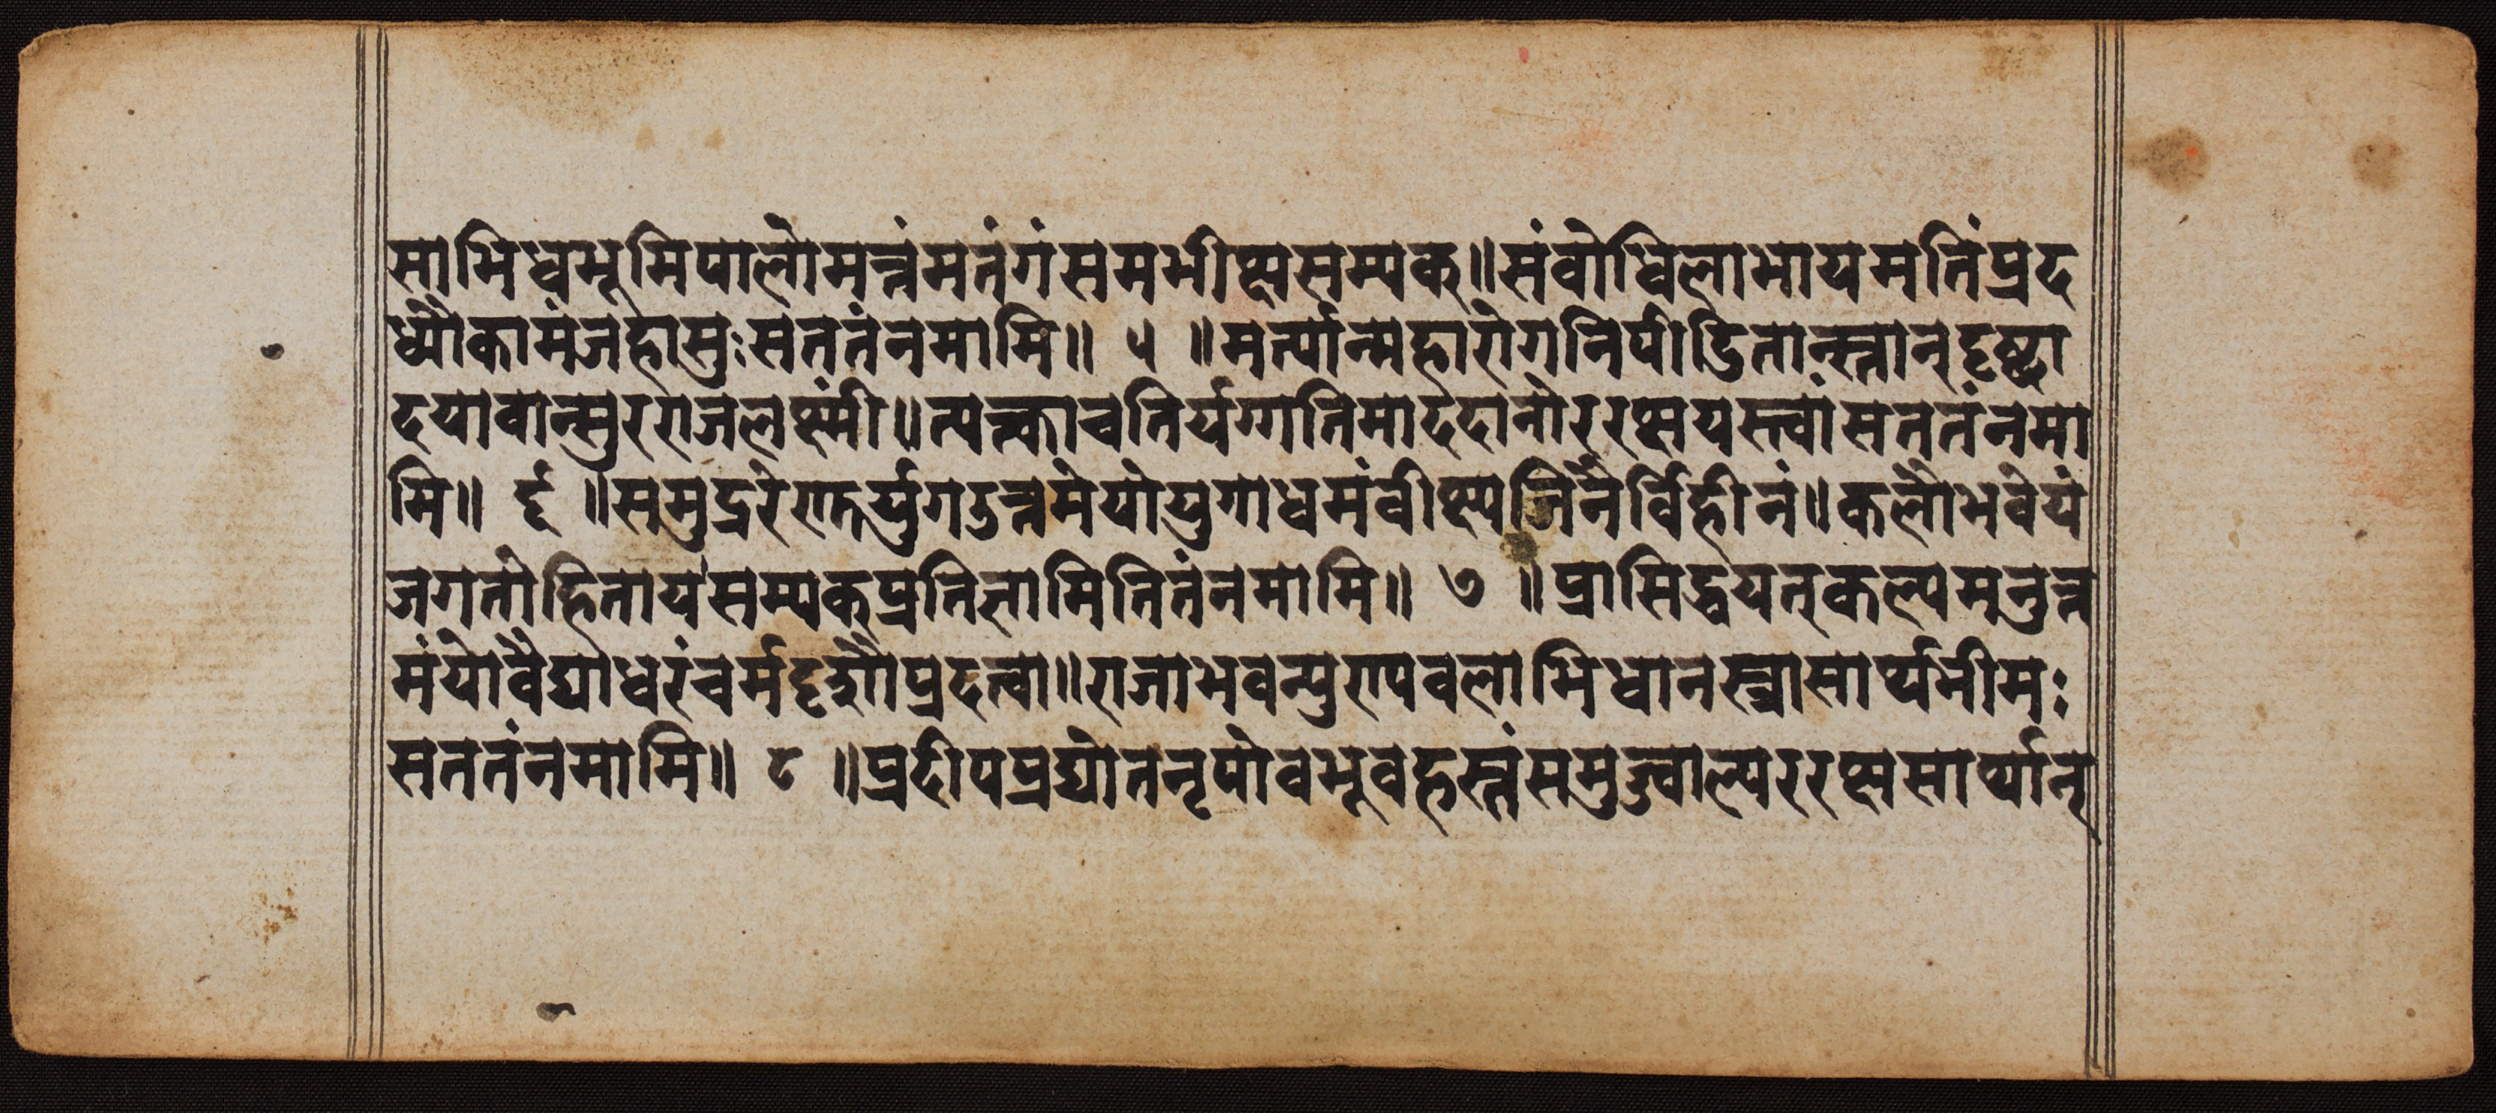 साभिधभूमिपालोमत्तंमतंगंसमभीक्ष्यसम्यक्॥संवोधिलाभायमतिंप्रद
ध्यौकामंजहासुःसततंनमामि॥ ५ ॥मर्त्यान्महारोगनिपीडितान्स्तान्दृष्ट्वा
दयावान्सुरराजलक्ष्मीं॥त्यक्त्वाचतिर्यग्गतिमाददानोररक्षयस्त्वांसततंनमा
मि॥ ६ ॥समुद्ररेणात्तर्युगउत्तमेयोयुगाधमंवीक्ष्यजिनैर्विहीनं॥कलौभवेयं
जगतोहितायसम्यक्प्रतिज्ञामितितंनमामि॥ ७ ॥प्रासिद्धयत्कल्पमनुत्त
मंयोवैद्याधरंचर्मदृढौप्रदत्वा॥राजाभवन्पुरापवलाभिधानस्त्रासार्थ्यभीमः
सततंनमामि॥ ८ ॥प्रदीपप्रद्योतनृपोवभूवहस्तंसमुज्वाल्यररक्षसार्थ्यान्